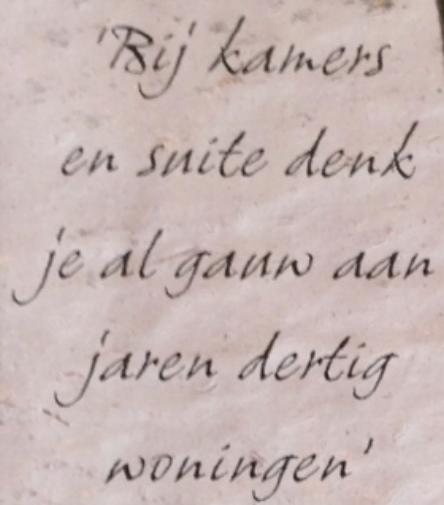 'Bij kamers
en suite denk
je al gauw aan
jaren dertig
woningen'